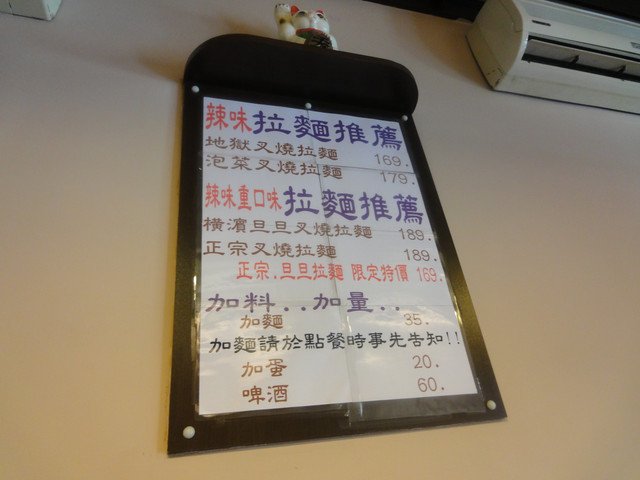 辣味拉麵推薦
地獄叉燒拉麵 169.
泡菜叉燒拉麵 179.
辣味重口味拉麵推薦
橫濱旦旦叉燒拉麵 189.
正宗叉燒拉麵 189.
正宗.旦旦拉麵 限定特價 169.
加料..加量..
加麵 35.
加麵請於點餐時事先告知!!
加蛋 20.
啤酒 60.